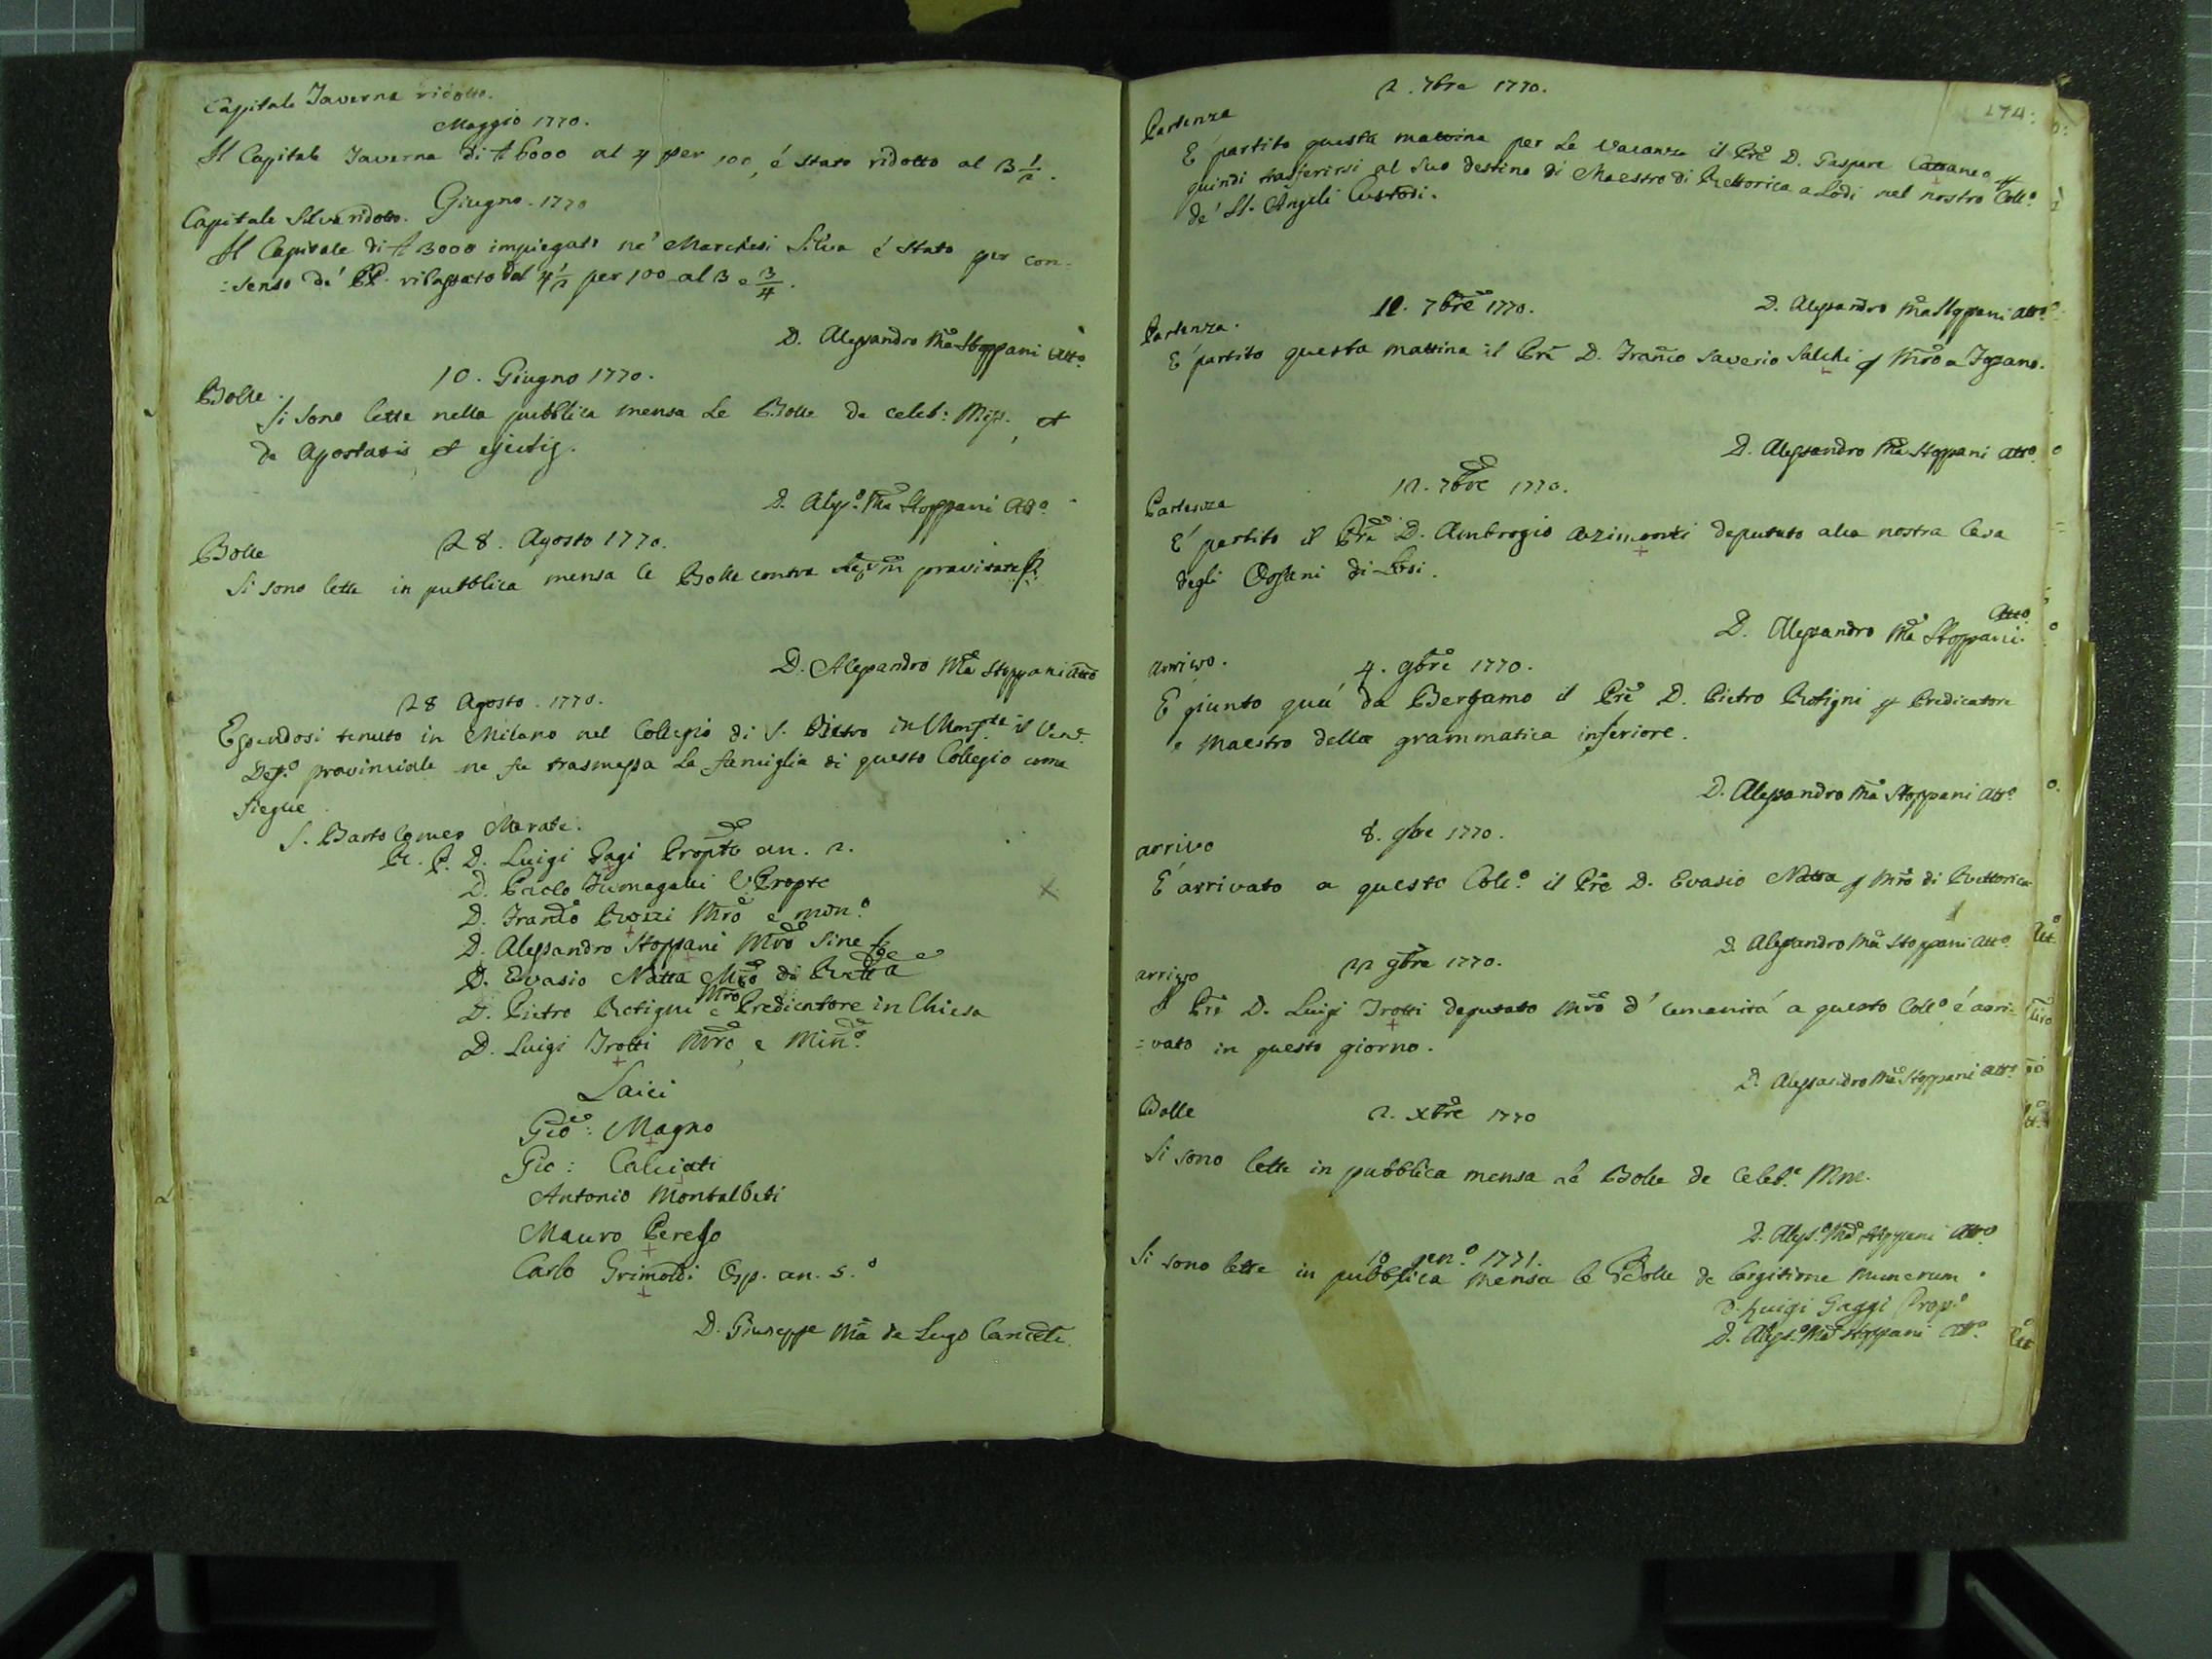 Capitale Taverna ridotto.
Maggio 1770.
Il Capitale Taverna di ₶ 6000 al 4 per 100, é stato ridotto al 3 1/2.
Giugno. 1770
Capitale Silva ridotto.
Il Capitale di ₶ 3000 impiegati ne' Marchesi Silva é stato per con-
:senso de' PP. rilassato dal 4 1/2 per 100 al 3 e 3/4.
D. Alessandro Mᵃ Stoppani Attº
10. Giugno 1770.
Bolle.
Si sono lette nella pubblica mensa le Bolle de celeb: Miss., et
de Apostatis, et ejectis.
D. Aless.º Mᵃ Stoppani Attº
28. Agosto 1770.
Bolle
Si sono lette in pubblica mensa le Bolle contra pravitate
D. Alessandro Mᵃ Stoppani Attº
28 Agosto. 1770.
Essendosi tenuto in Milano nel Collegio di S. Pietro in Monf.te il Ven.
Def.º provinciale ne fu trasmessa la famiglia di questo Collegio come
siegue
S. Bartolomeo Merate.
M. R. D. Luigi Gagi Propto an. 2.
D. Paolo Fumagalli V. Propto
D. Franco Rossi Mrõ e min.º
D. Alessandro Stoppani Mrõ sine
D. Evasio Natta Mrõ di Retta
D. Pietro Rotigni Mrõ e Predicatore in Chiesa
D. Luigi Trotti Mrõ, e Min.º
Laici
Gio: Magno
Gio: Calciati
Antonio Montalbeti
Mauro Perego
Carlo Grimoldi Osp. an. 5.º
D. Giuseppe Mᵃ de Lugo Cancelle.
174:
2. 7bre 1770.
Partenza
E' partito questa mattina per le Vacanze il Prẽ D. Gaspare Cattaneo p
quindi trasferirsi al suo destino di Maestro di Rettorica a Lodi nel nostro Coll.º
de' SS. Angeli Custodi.
D. Alessandro Mᵃ Stoppani Attº
10. 7bre 1770.
Partenza.
E' partito questa mattina il Prẽ D. Franco Saverio Salchi p Mrõ a Fossano.
D. Alessandro Mᵃ Stoppani Attº
12. 7bre 1770.
Partenza
E' partito il Prẽ D. Ambrogio Azimonti deputato alla nostra Casa
degli Orfani di Lodi.
D. Alessandro Mᵃ Stoppani. Attº
arrivo.
4. 9bre 1770.
E' giunto quá da Bergamo il Prẽ D. Pietro Rotigni p Predicatore
e Maestro della grammatica inferiore.
D. Alessandro Mᵃ Stoppani Attº
arrivo
8. 9bre 1770.
E' arrivato a questo Coll.º il Prẽ D. Evasio Natta p Mrõ di Rettorica
D. Alessandro Mᵃ Stoppani Attº
arrivo
22 9bre 1770.
Il Prẽ D. Luigi Trotti deputato Mrõ d' umanitá a questo Coll.º é arri-
:vato in questo giorno.
D. Alessandro Mᵃ Stoppani Attº
Bolle
2. Xbre 1770
Si sono lette in pubblica mensa le Bolle de Celeb.e Mm.
D. Aless.º Mᵃ Stoppani Attº
10 gen.º 1771.
Si sono lette in pubblica mensa le Bolle de largitione munerum.
D. Luigi Gaggi Prop.º
D. Aless.º Mᵃ Stoppani Attº